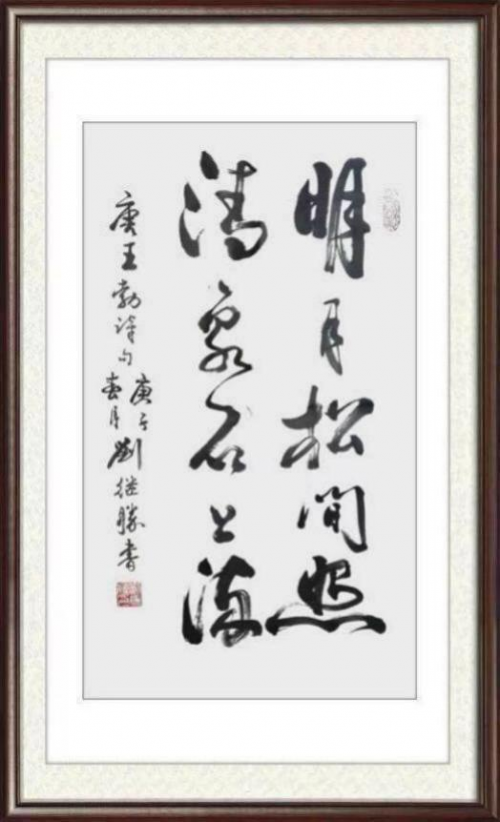 明月松间照
清泉石上流
唐王勃诗句
庚子
春月
刘继胜书